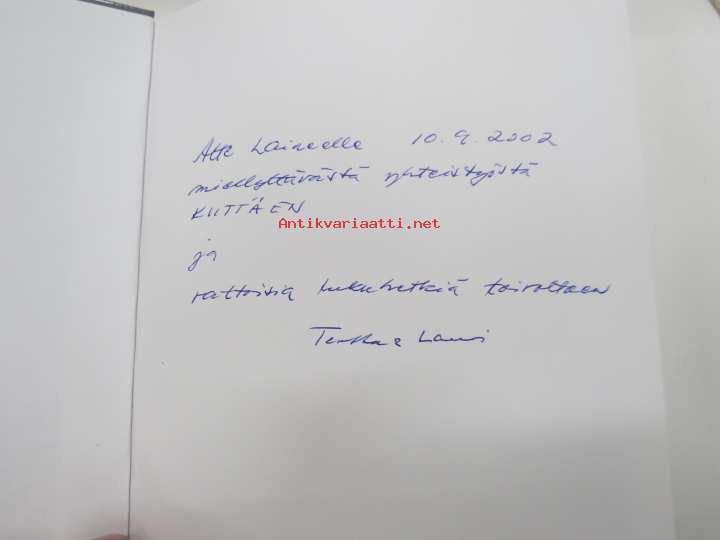 Atte Laineelle 10.9.2002
miellyttävästä yhteistyöstä
KIITTÄEN
Antikvariaatti.net
ja
rattoisia lukuhetkiä toivottaen
Lauri